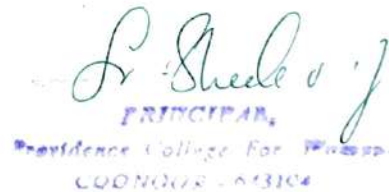 Sr. Sheela
PRINCIPAL,
Providence College For Women
COONOOR - 643104